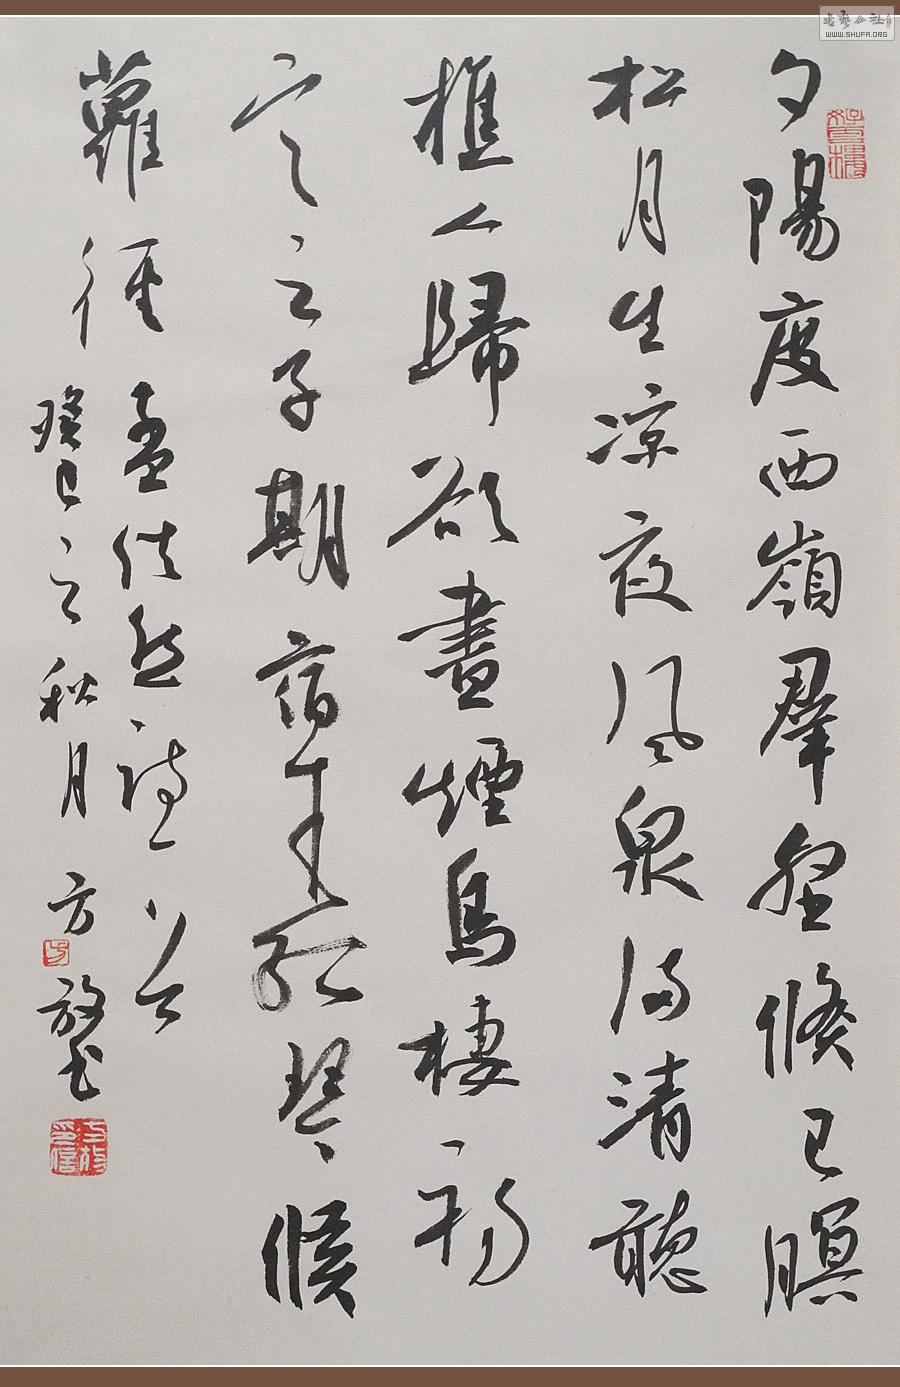 夕陽度西嶺羣壑倏已暝
松月生凉夜風泉滿清聽
樵人歸欲盡煙鳥棲初
定之子期宿来孤琴候
蘿徑 孟浩然詩一首
癸巳之秋月 方放书
书艺公社
WWW.SHUFA.ORG